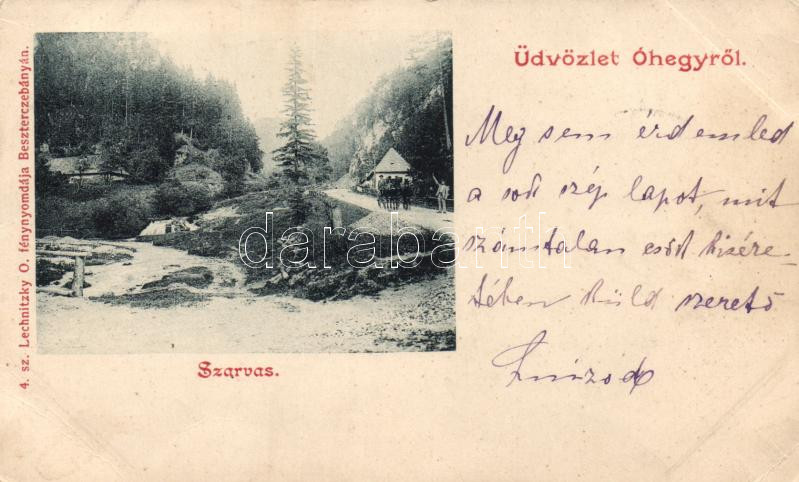 Üdvözlet Óhegyről.
Meg sem érdemled
a sok szép lapot, mit
számtalan csók kisére-
tében küld szerető
Szarvas.
4. sz. Lechnitzky O. fénynyomdája Beszterczebányán.
darabanth